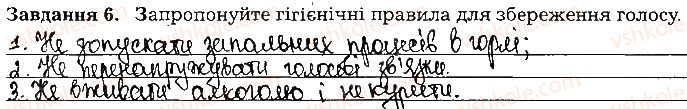 Завдання 6. Запропонуйте гігієнічні правила для збереження голосу.
1. Не допускати запальних процесів в горлі;
2. Не перенапружувати голосові зв'язки.
3. Не вживати алкоголю і не курити.